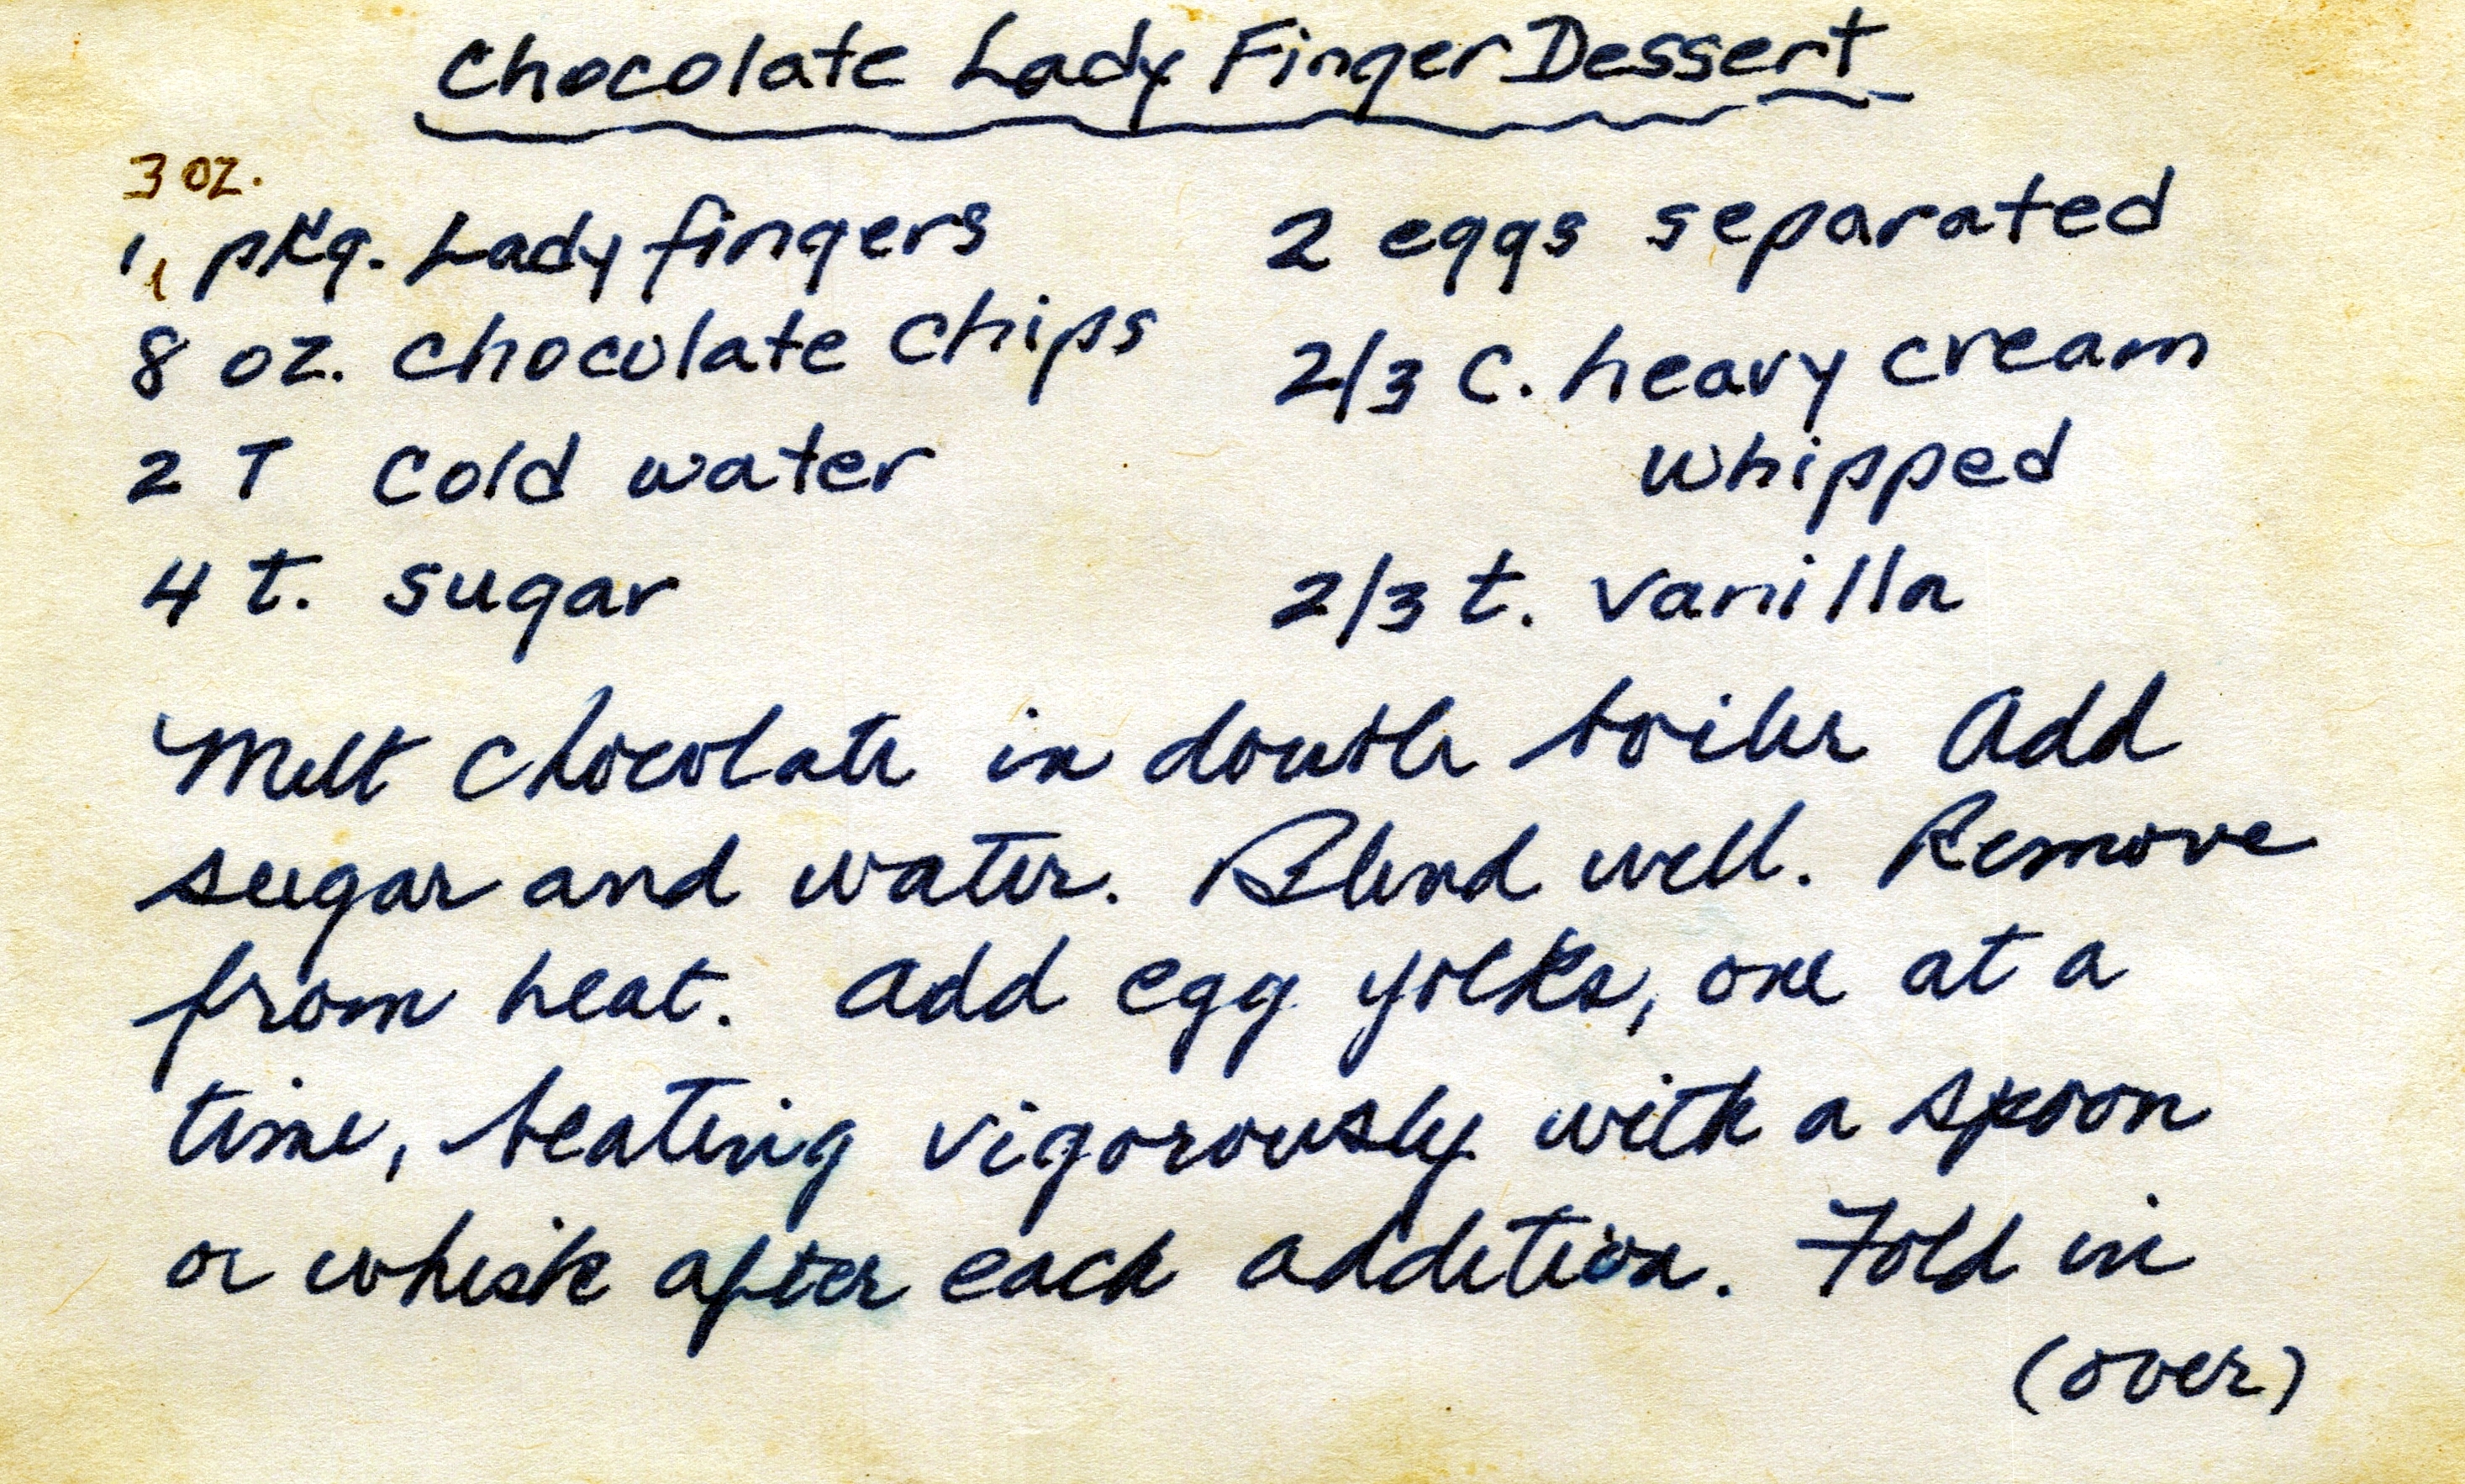 Chocolate Lady Finger Dessert
3 oz.
1 pkg. Lady fingers
8 oz. chocolate chips
2 T cold water
4 t. sugar
2 eggs separated
2/3 C. heavy cream
whipped
2/3 t. vanilla
Melt chocolate in double boiler Add
sugar and water. Blend well. Remove
from heat. Add egg yolks, one at a
time, beating vigorously with a spoon
or whisk after each addition. Fold in
(over)